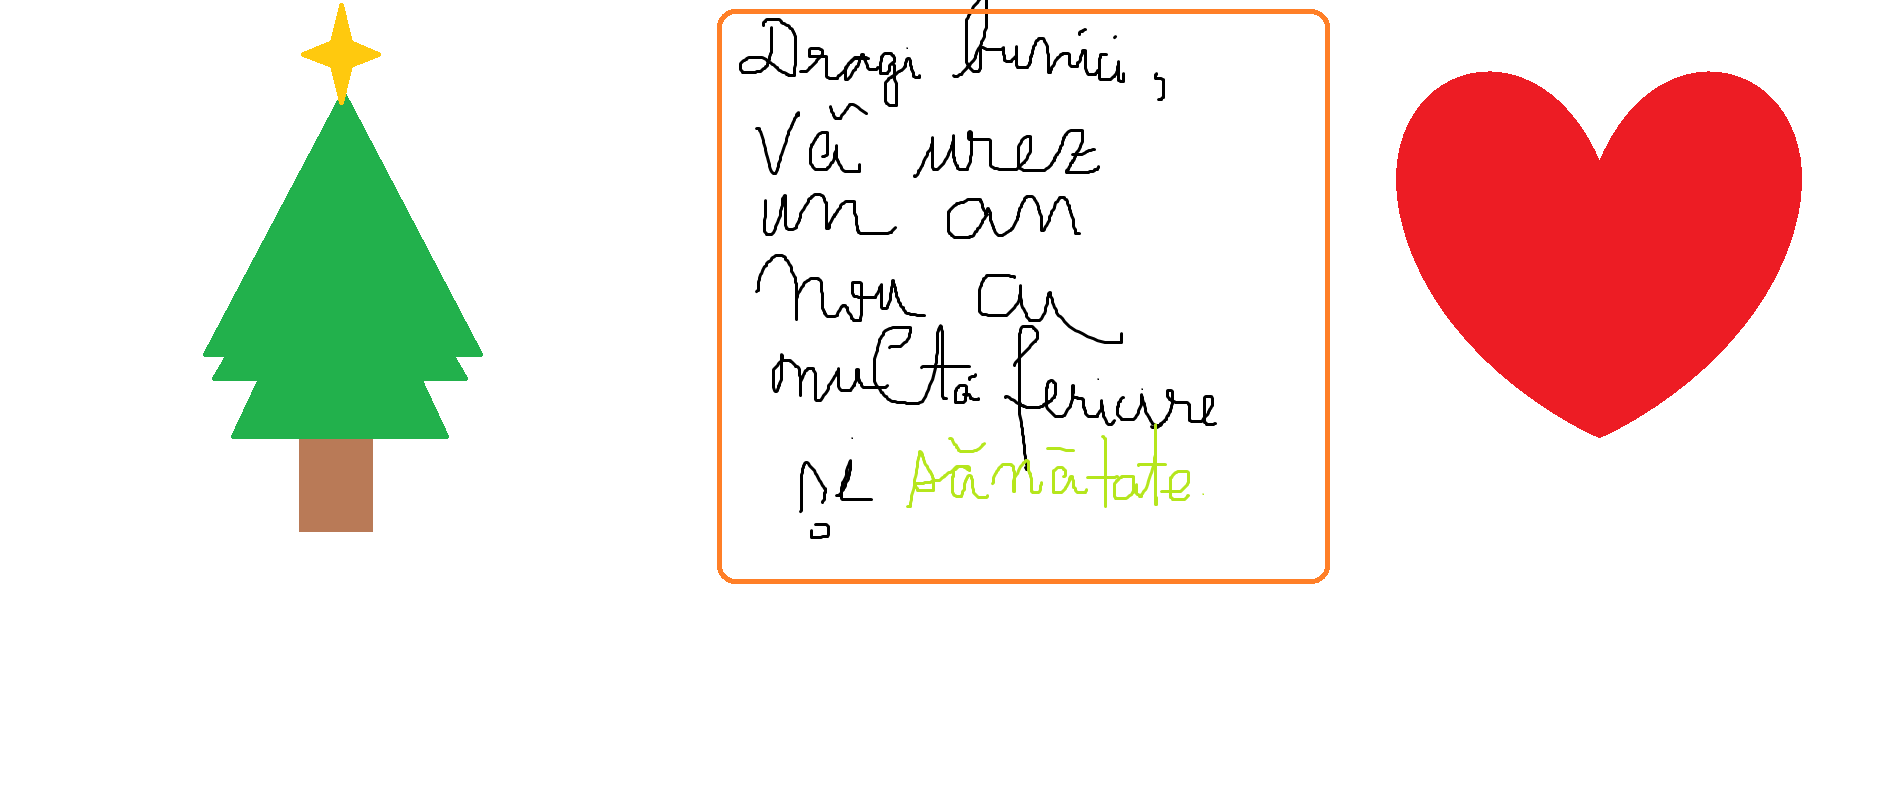 Dragi bunici,
Vă urez
un an
nou cu
multă fericire
și sănătate.